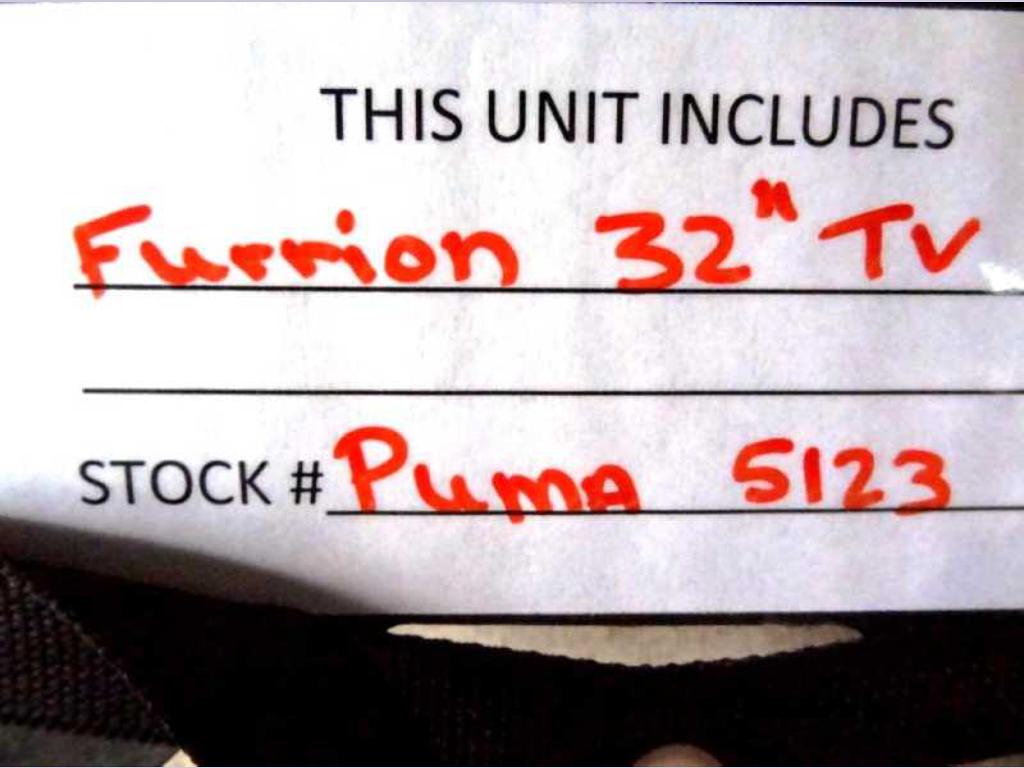 THIS UNIT INCLUDES
Furrion 32" TV
STOCK # Puma 5123